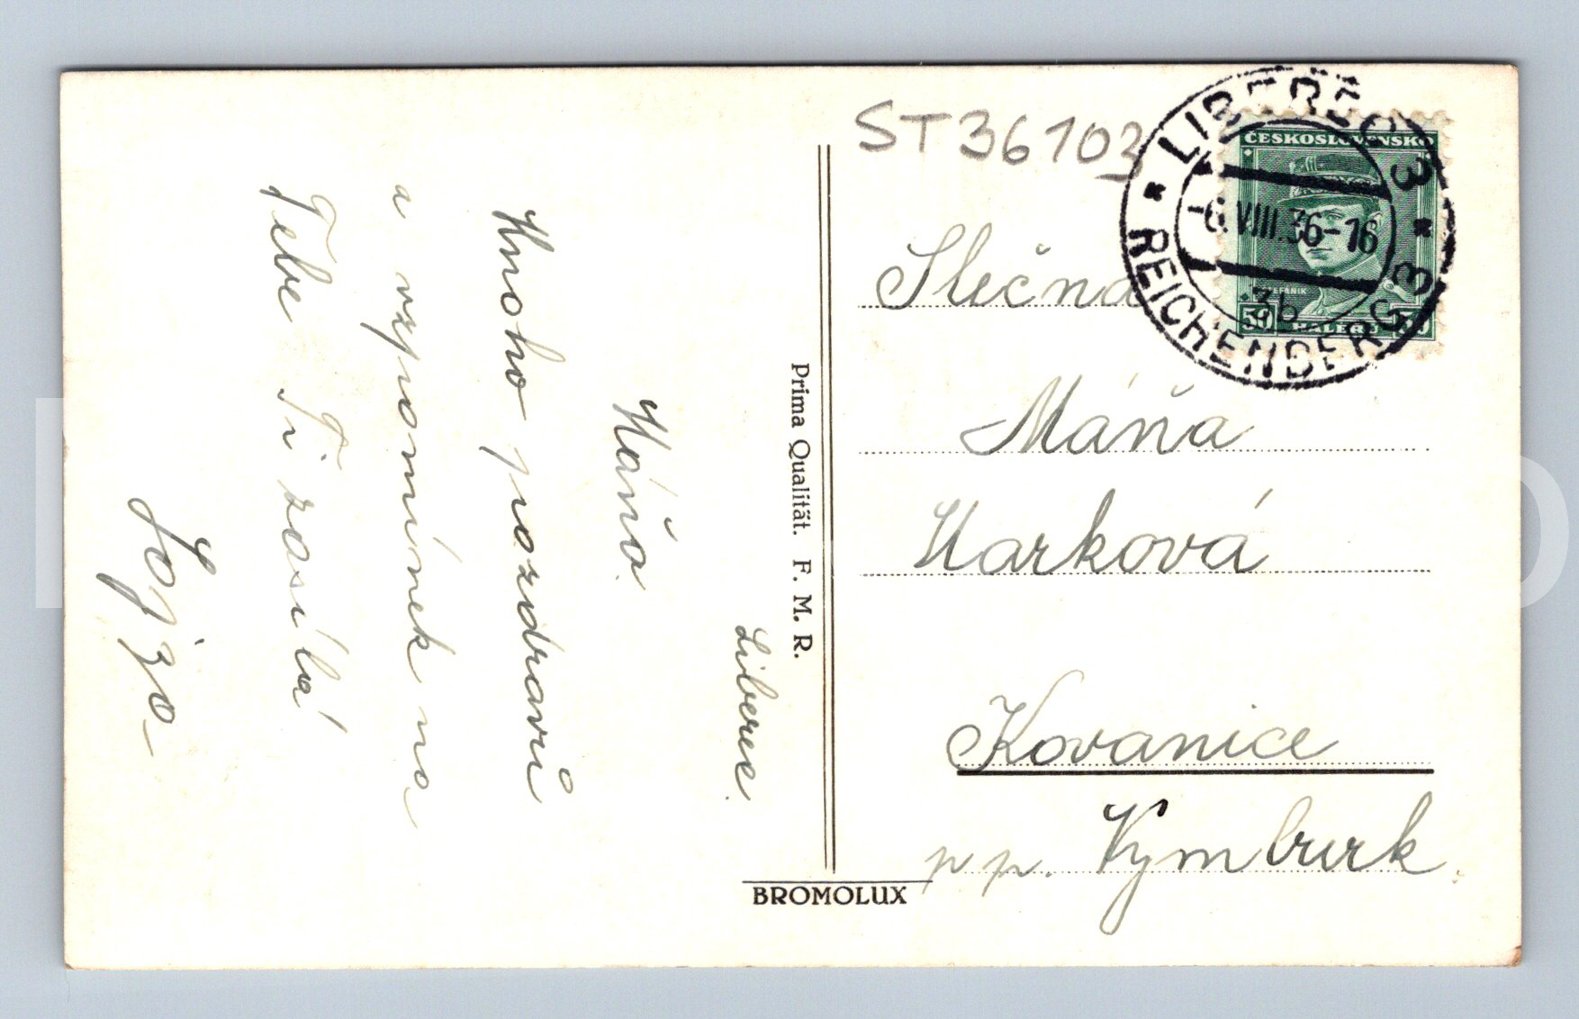 Liberec.
Máňo.
Mnoho pozdravů
a vzpomínek na
Tebe Ti zasílá
Jojza
Prima Qualität. F. M. R.
BROMOLUX
ST36103
LIBEREC 3
-6.VIII.36-16
3b
REICHENBERG 3
ČESKOSLOVENSKO
ŠTEFÁNIK
50 HALÉŘŮ 50
Slečna
Máňa
Marková
Kovanice
pp. Nymburk.